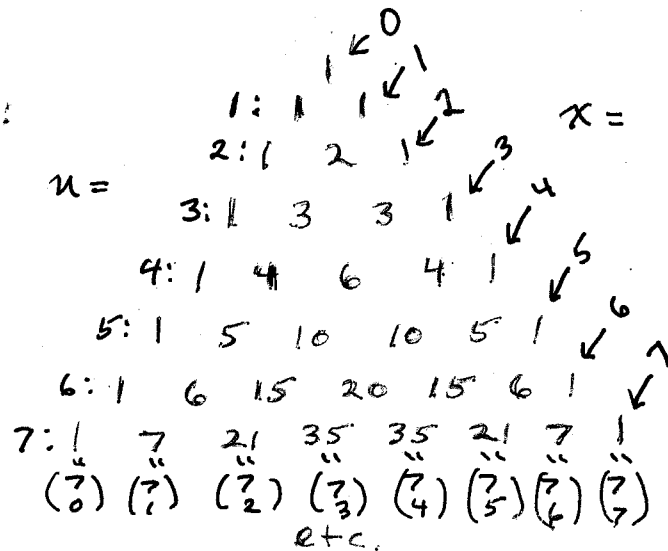 0
1 1
: 1: 1 1 2 x =
2: 1 2 1 3
n = 4
3: 1 3 3 1
4: 1 4 6 4 1 5
5: 1 5 10 10 5 1 6
6: 1 6 15 20 15 6 1 7
7: 1 7 21 35 35 21 7 1
" " " " " " " "
(7 0) (7 1) (7 2) (7 3) (7 4) (7 5) (7 6) (7 7)
etc.